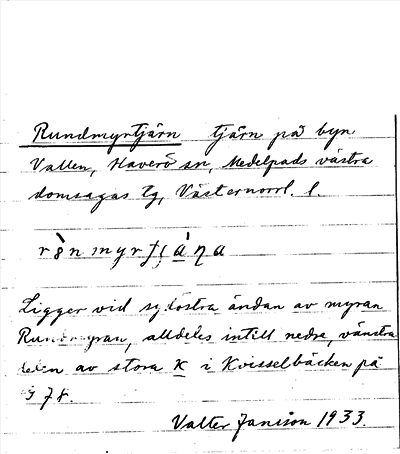 Rundmyrtjärn tjärn på byn
Vallen, Haverö sn, Medelpads västra
domsagas tg, Västernorrl. l.
Ligger vid sydöstra ändan av myran
Rundmyran, alldeles intill nedre, vänstra
delen av stora K i Kvisselbäcken på
78.
Valter Janson 1933.